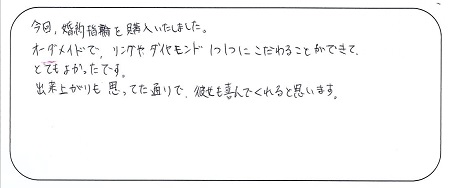 今回、婚約指輪を購入いたしました。
オーダメイドで、リングやダイヤモンド1つ1つにこだわることができて、
とてもよかったです。
出来上がりも思ってた通りで、彼女も喜んでくれると思います。